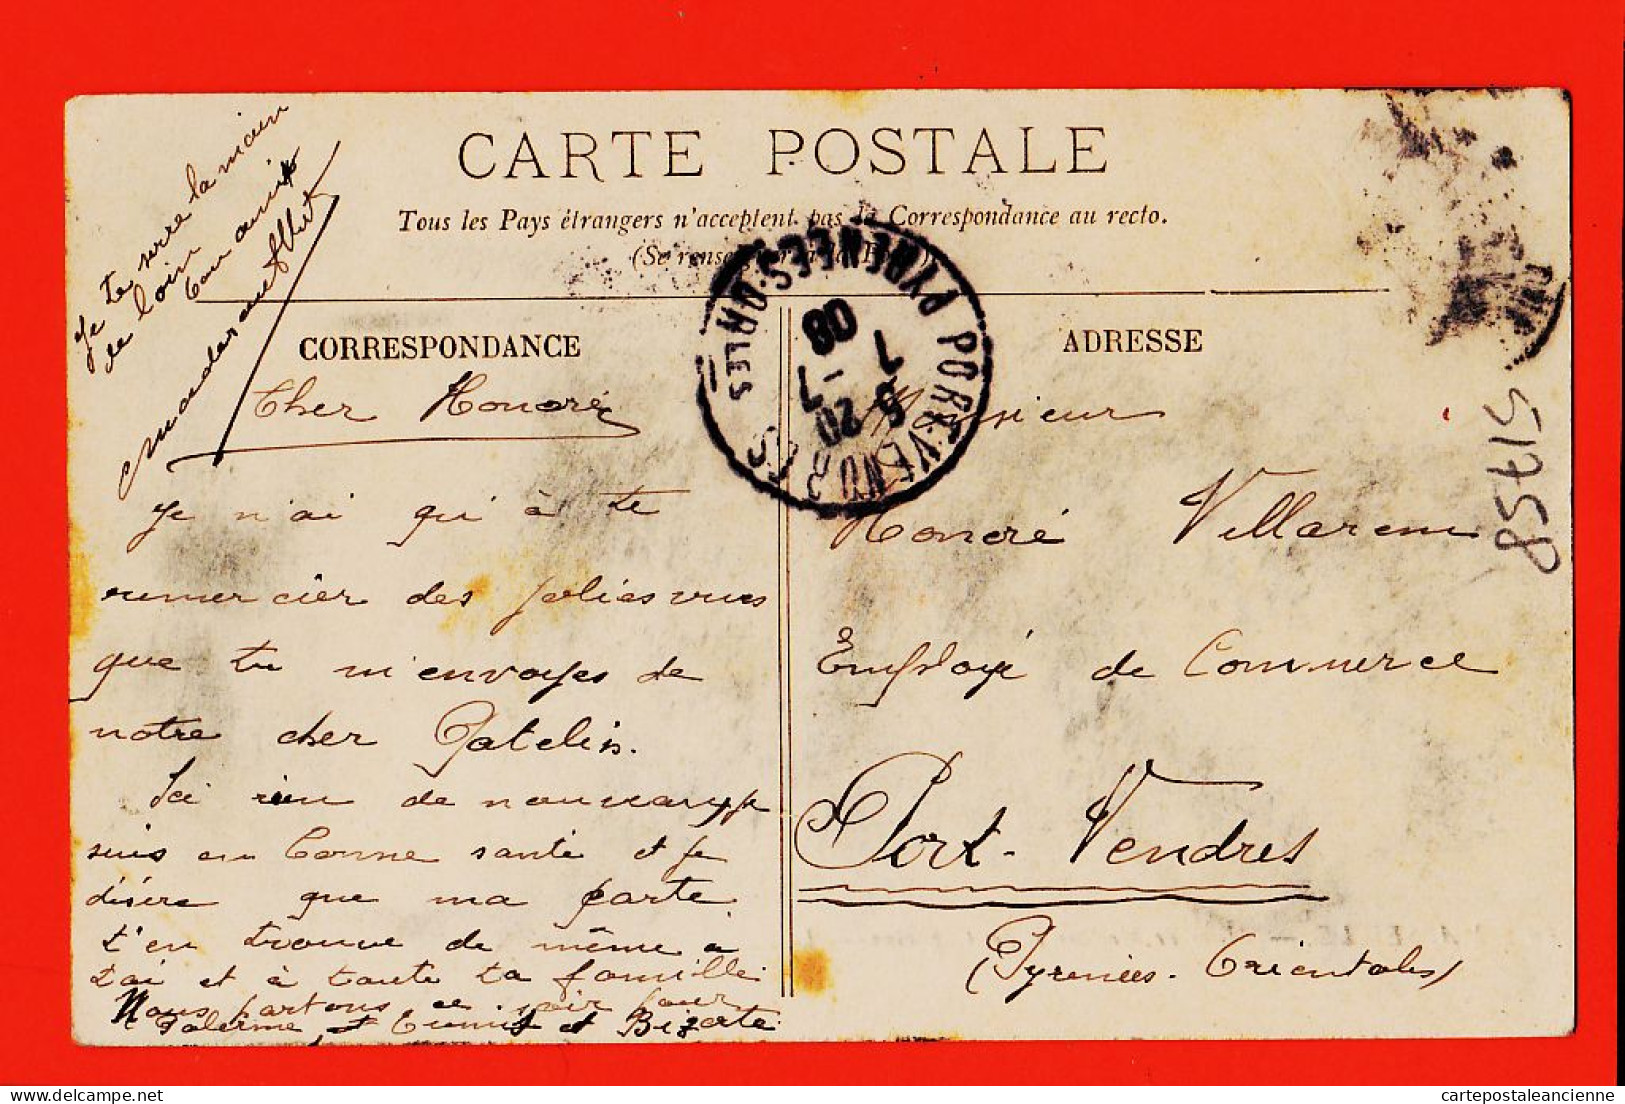 CARTE POSTALE
Tous les Pays étrangers n'acceptent pas la Correspondance au recto.
(Se renseigner à la Poste)
CORRESPONDANCE
Cher Honoré
Je n'ai qu'à te
remercier des jolies vues
que tu m'envoyes de
notre cher Patelin.
Ici rien de nouveau je
suis en bonne santé et je
désire que ma carte
t'en trouve de même à
toi et à toute ta famille.
Nous partons ce soir pour
Palerme et Tunis et Bizerte
Je te serre la main
de loin ton ami
Albert
ADRESSE
Monsieur
Honoré Villarem
Employé de Commerce
Port-Vendres
(Pyrénées-Orientales)
PORT-VENDRES
PYRENEES-ORLES
5 20
7 - 7
08
517558
cartepostaleancienne